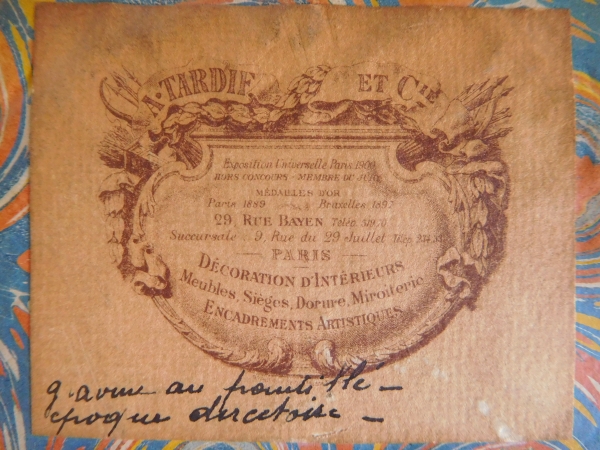 A. TARDIF ET CIE
Exposition Universelle Paris 1900
HORS CONCOURS - MEMBRE DU JURY
MÉDAILLES D'OR
Paris 1889 Bruxelles 1897
29, RUE BAYEN Télép.
Succursale 9, Rue du 29 Juillet Télép.
PARIS
DÉCORATION D'INTÉRIEURS
Meubles, Sièges, Dorure, Miroiterie
ENCADREMENTS ARTISTIQUES
gravure au pointillé -
époque directoire -